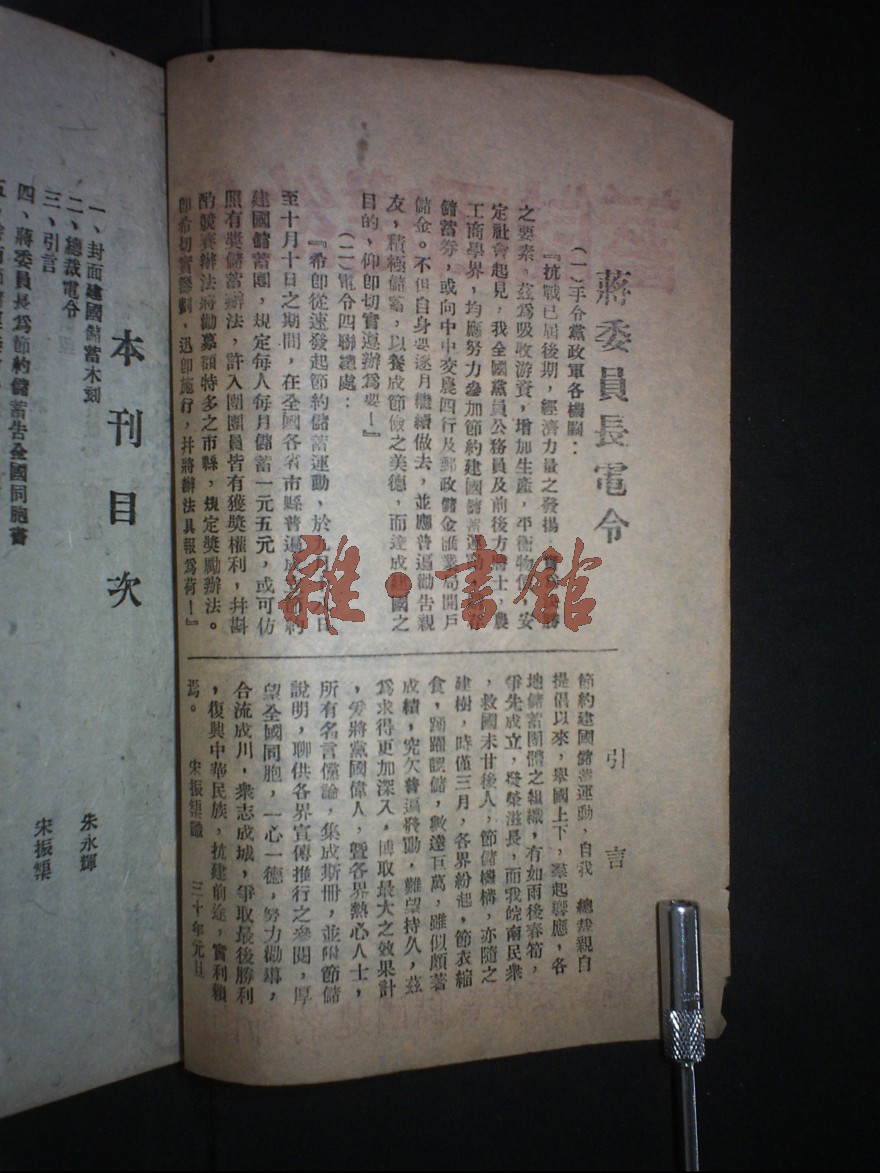 蔣委員長電令
(一)手令黨政軍各機關：
『抗戰已屆後期，經濟力量之發揚，實為決勝
之要素，茲為吸收游資，增加生產，平衡物價，安
定社會起見，我全國黨員公務員及前後方將士，農
工商學界，均應努力參加節約建國儲蓄運動，購存
儲蓄券，或向中中交農四行及郵政儲金匯業局開戶
儲金。不但自身要逐月繼續做去，並應普遍勸告親
友，積極儲蓄，以養成節儉之美德，而達成建國之
目的，仰即切實遵辦為要！』
(二)電令四聯總處：
『希即從速發起節約儲蓄運動，於九月 日
至十月十日之期間，在全國各省市縣普遍成立節約
建國儲蓄團，規定每人每月儲蓄一元五元，或可仿
照有獎儲蓄辦法，許入團團員皆有獲獎權利，并斟
酌競賽辦法將勸募額特多之市縣，規定獎勵辦法。
即希切實籌劃，迅即施行，并將辦法具報為荷！』
引言
節約建國儲蓄運動，自我 總裁親自
提倡以來，舉國上下，羣起響應，各
地儲蓄團體之組織，有如雨後春筍，
爭先成立，發榮滋長，而我皖南民衆
，救國未甘後人，節儲機構，亦隨之
建樹，時僅三月，各界紛起，節衣縮
食，踴躍認儲，數達巨萬，雖似頗著
成績，究欠普遍發動，難望持久，茲
為求得更加深入，博取最大之效果計
，爰將黨國偉人，暨各界熱心人士，
所有名言儻論，集成斯冊，並附節儲
說明，聊供各界宣傳推行之參閱，厚
望全國同胞，一心一德，努力勸導，
合流成川，衆志成城，爭取最後勝利
，復興中華民族，抗建前途，實利賴
焉。 宋振榘識 三十年元旦
本刊目次
一、封面建國儲蓄木刻 朱永輝
二、總裁電令
三、引言 宋振榘
四、蔣委員長為節約儲蓄告全國同胞書
五、
雜·書館